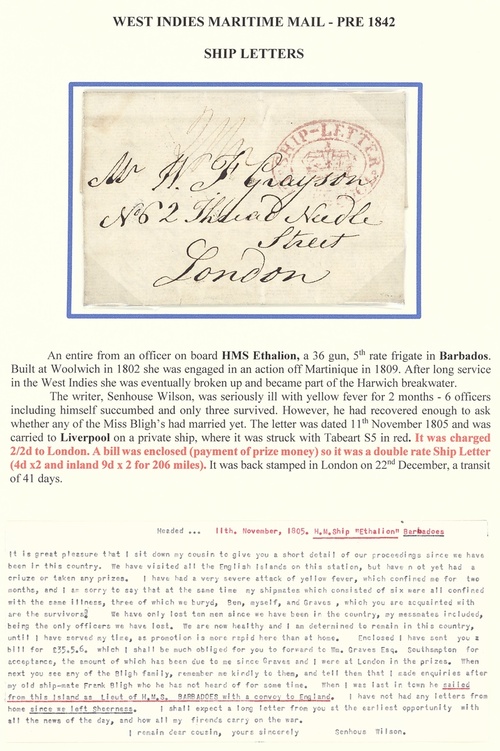 WEST INDIES MARITIME MAIL - PRE 1842
SHIP LETTERS
SHIP-LETTER
Mr W. F Grayson
No 62 Thread Needle
Street
London
An entire from an officer on board HMS Ethalion, a 36 gun, 5th rate frigate in Barbados.
Built at Woolwich in 1802 she was engaged in an action off Martinique in 1809. After long service
in the West Indies she was eventually broken up and became part of the Harwich breakwater.
The writer, Senhouse Wilson, was seriously ill with yellow fever for 2 months - 6 officers
including himself succumbed and only three survived. However, he had recovered enough to ask
whether any of the Miss Bligh's had married yet. The letter was dated 11th November 1805 and was
carried to Liverpool on a private ship, where it was struck with Tabeart S5 in red. It was charged
2/2d to London. A bill was enclosed (payment of prize money) so it was a double rate Ship Letter
(4d x2 and inland 9d x 2 for 206 miles). It was back stamped in London on 22nd December, a transit
of 41 days.
Headed ... 11th. November, 1805. H.M.Ship "Ethalion" Barbadoes
It is great pleasure that I sit down my cousin to give you a short detail of our proceedings since we have
been in this country. We have visited all the English Islands on this station, but have n ot yet had a
criuze or taken any prizes. I have had a very severe attack of yellow fever, which confined me for two
months, and I am sorry to say that at the same time my shipmates which consisted of six were all confined
with the same illness, three of which we buryd, Ben, myself, and Graves , which you are acquainted with
are the survivors. We have only lost ten men since we have been in the country, my messmates included,
being the only officers we have lost. We are now healthy and I am determined to remain in this country,
until I have served my time, as promotion is more rapid here than at home. Enclosed I have sent you a
bill for £35.5.6. which I shall be much obliged for you to forward to Wm. Graves Esq. Southampton for
acceptance, the amount of which has been due to me since Graves and I were at London in the prizes. When
next you see any of the Bligh family, remember me kindly to them, and tell them that I cade enquiries after
my old ship-mate Frank Bligh who has not heard of for some time. When I was last in town he sailed
from this Island as Lieut of H.M.S. BARBADOES with a convoy to England. I have not had any letters from
home since we left Sheerness. I shall expect a long letter from you at the earliest opportunity with
all the news of the day, and how all my firends carry on the war.
I remain dear cousin, yours sincerely Senhous Wilson.